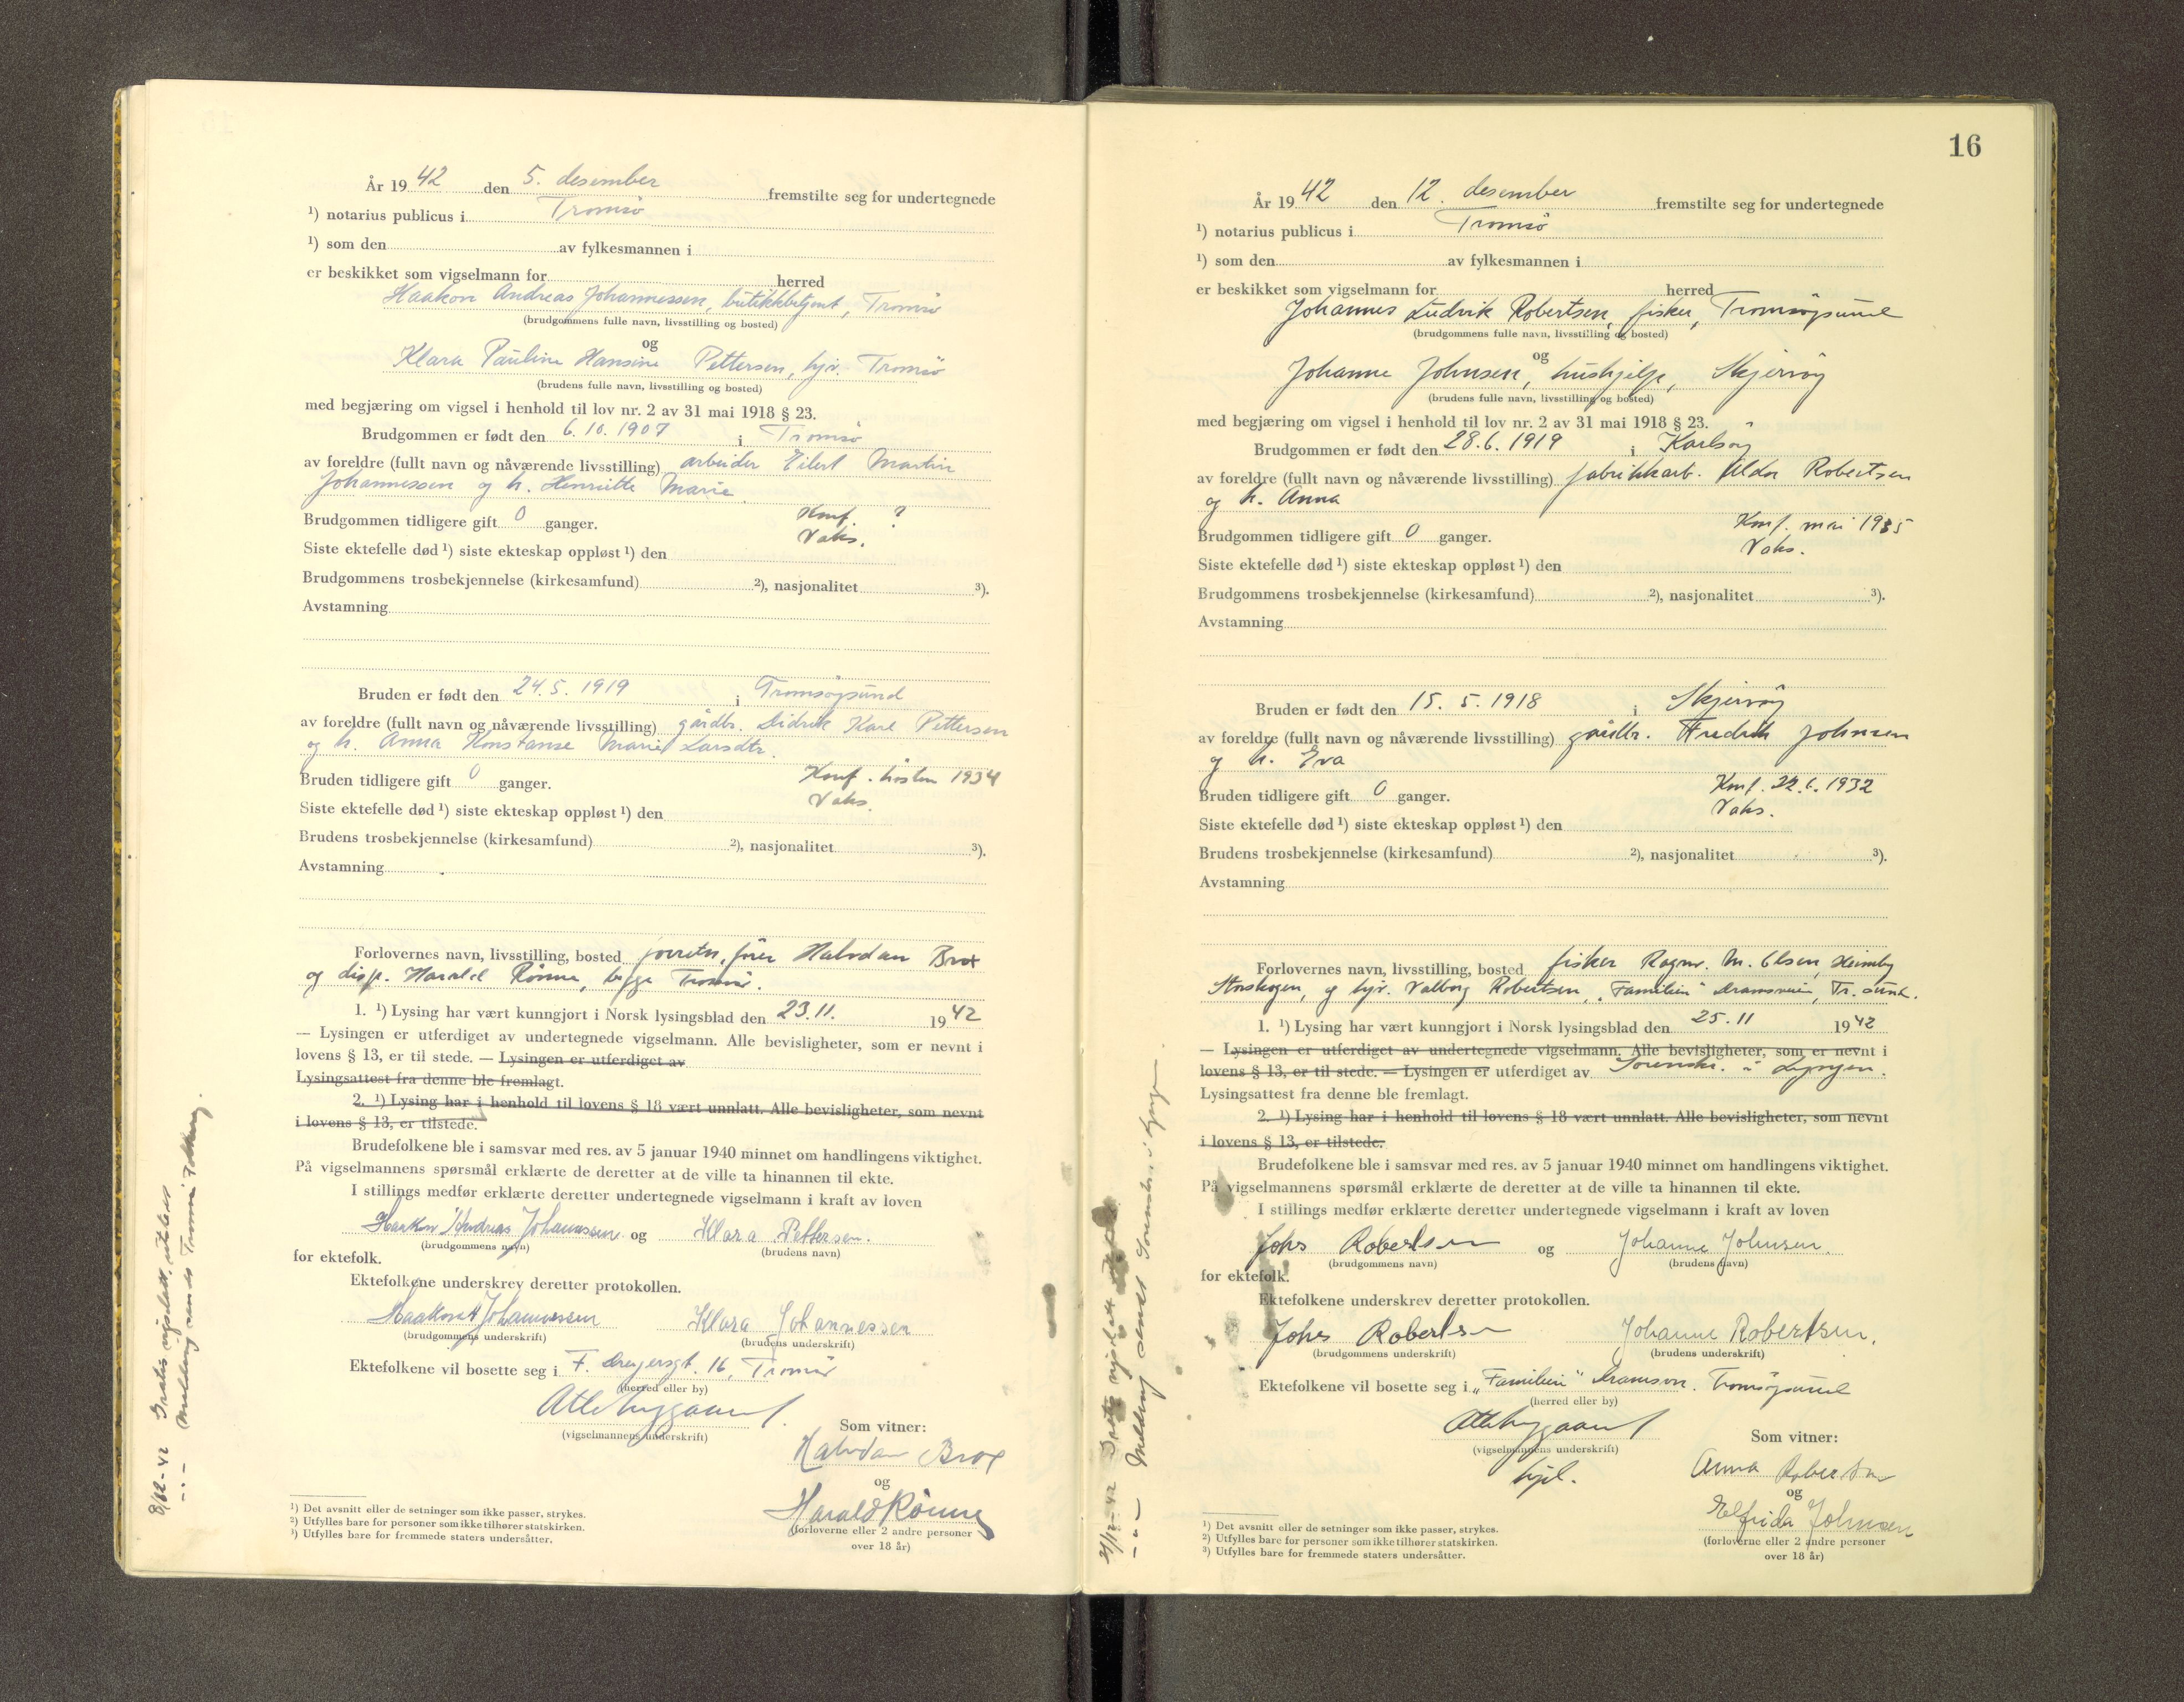 År 1942 den 5. desember fremstilte seg for undertegnede
¹) notarius publicus i Tromsö
¹) som den av fylkesmannen i
er beskikket som vigselmann for herred
Haakon Andreas Johannessen, butikkbetjent, Tromsö
(brudgommens fulle navn, livsstilling og bosted)
og
Klara Pauline Hansine Pettersen, hjv. Tromsö
(brudens fulle navn, livsstilling og bosted)
med begjæring om vigsel i henhold til lov nr. 2 av 31 mai 1918 § 23.
Brudgommen er født den 6. 10. 1907 i Tromsö
av foreldre (fullt navn og nåværende livsstilling) arbeider Eilert Martin
Johannessen og h. Henriette Marie
Konf. ?
Brudgommen tidligere gift 0 ganger.
Vaks.
Siste ektefelle død ¹) siste ekteskap oppløst ¹) den
Brudgommens trosbekjennelse (kirkesamfund) ²), nasjonalitet ³).
Avstamning
Bruden er født den 24. 5. 1919 i Tromsöysund
av foreldre (fullt navn og nåværende livsstilling) gårdbr. Didrik Karl Pettersen
og h. Anna Konstanse Marie Larsdtr.
Bruden tidligere gift 0 ganger. Konf. hösten 1934
Vaks.
Siste ektefelle død ¹) siste ekteskap oppløst ¹) den
Brudens trosbekjennelse (kirkesamfund) ²), nasjonalitet ³).
Avstamning
Forlovernes navn, livsstilling, bosted forretn.förer Halvdan Brox
og disp. Harald Rönne, begge Tromsö.
1. ¹) Lysing har vært kunngjort i Norsk lysingsblad den 23. 11. 1942
— Lysingen er utferdiget av undertegnede vigselmann. Alle bevisligheter, som er nevnt i
lovens § 13, er til stede. — Lysingen er utferdiget av
Lysingsattest fra denne ble fremlagt.
2. ¹) Lysing har i henhold til lovens § 18 vært unnlatt. Alle bevisligheter, som nevnt
i lovens § 13, er tilstede.
Brudefolkene ble i samsvar med res. av 5 januar 1940 minnet om handlingens viktighet.
På vigselmannens spørsmål erklærte de deretter at de ville ta hinannen til ekte.
I stillings medfør erklærte deretter undertegnede vigselmann i kraft av loven
Haakon Andreas Johannessen og Klara Pettersen.
(brudgommens navn) (brudens navn)
for ektefolk.
Ektefolkene underskrev deretter protokollen.
Haakon A Johannessen Klara Johannessen
(brudgommens underskrift) (brudens underskrift)
Ektefolkene vil bosette seg i F. Dreyersgt. 16, Tromsö
(herred eller by)
(vigselmannens underskrift)
Som vitner:
Halvdan Brox
og
Harald Rönne
(forloverne eller 2 andre personer
over 18 år)
¹) Det avsnitt eller de setninger som ikke passer, strykes.
²) Utfylles bare for personer som ikke tilhører statskirken.
³) Utfylles bare for fremmede staters undersåtter.
16
År 1942 den 12. desember fremstilte seg for undertegnede
¹) notarius publicus i Tromsö
¹) som den av fylkesmannen i
er beskikket som vigselmann for herred
Johannes Ludvik Robertsen, fisker, Tromsöysund
(brudgommens fulle navn, livsstilling og bosted)
og
Johanne Johnsen, hushjelp, Skjervöy
(brudens fulle navn, livsstilling og bosted)
med begjæring om vigsel i henhold til lov nr. 2 av 31 mai 1918 § 23.
Brudgommen er født den 28. 6. 1919 i Karlsöy
av foreldre (fullt navn og nåværende livsstilling) fabrikkarb. Robertsen
og h. Anna
Konf. mai 1935
Brudgommen tidligere gift 0 ganger.
Vaks.
Siste ektefelle død ¹) siste ekteskap oppløst ¹) den
Brudgommens trosbekjennelse (kirkesamfund) ²), nasjonalitet ³).
Avstamning
Bruden er født den 15. 5. 1918 i Skjervöy
av foreldre (fullt navn og nåværende livsstilling) gårdbr. Fredrik Johnsen
og h. Eva
Bruden tidligere gift 0 ganger. Konf. 1932
Vaks.
Siste ektefelle død ¹) siste ekteskap oppløst ¹) den
Brudens trosbekjennelse (kirkesamfund) ²), nasjonalitet ³).
Avstamning
Forlovernes navn, livsstilling, bosted fisker Ragnv. M. Olsen, Heimby
Storskogen, og hjv. Valborg Robertsen, „Familien" Dramsveien, Tr.sund.
1. ¹) Lysing har vært kunngjort i Norsk lysingsblad den 25. 11 1942
— Lysingen er utferdiget av undertegnede vigselmann. Alle bevisligheter, som er nevnt i
lovens § 13, er til stede. — Lysingen er utferdiget av Sorenskr. i Lyngen.
Lysingsattest fra denne ble fremlagt.
2. ¹) Lysing har i henhold til lovens § 18 vært unnlatt. Alle bevisligheter, som nevnt
i lovens § 13, er tilstede.
Brudefolkene ble i samsvar med res. av 5 januar 1940 minnet om handlingens viktighet.
På vigselmannens spørsmål erklærte de deretter at de ville ta hinannen til ekte.
I stillings medfør erklærte deretter undertegnede vigselmann i kraft av loven
Johs Robertsen og Johanne Johnsen.
(brudgommens navn) (brudens navn)
for ektefolk.
Ektefolkene underskrev deretter protokollen.
Johs Robertsen Johanne Robertsen.
(brudgommens underskrift) (brudens underskrift)
Ektefolkene vil bosette seg i „Familien" Dramsvn. Tromsöysund
(herred eller by)
(vigselmannens underskrift)
Som vitner:
Anna Robertsen
og
Elfrida Johnsen
(forloverne eller 2 andre personer
over 18 år)
¹) Det avsnitt eller de setninger som ikke passer, strykes.
²) Utfylles bare for personer som ikke tilhører statskirken.
³) Utfylles bare for fremmede staters undersåtter.